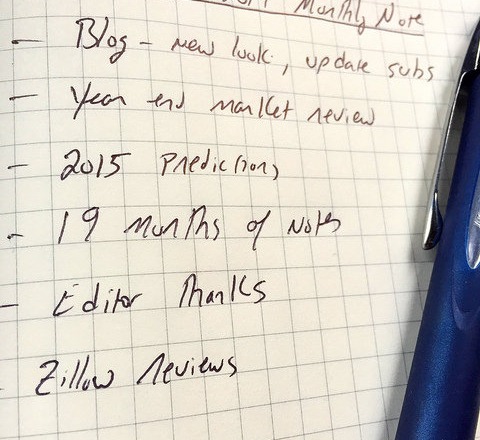 Monthly Note
- Blog - new look, update subs
- Year end market review
- 2015 Predictions
- 19 months of notes
- Editor Thanks
- Zillow Reviews